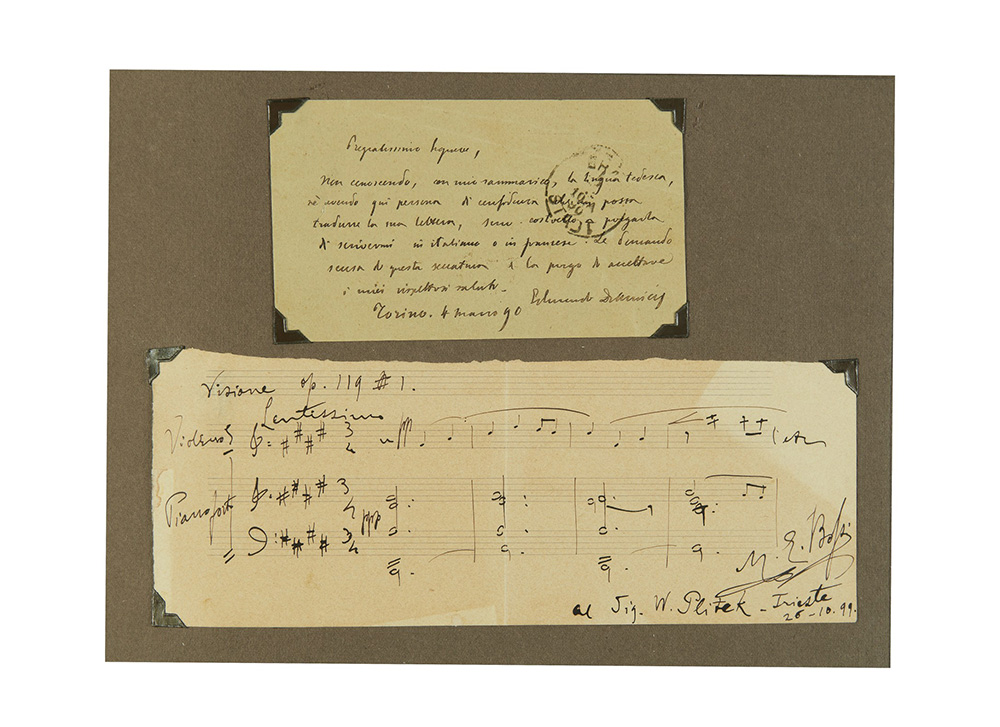 Pregiatissimo Signore,
Non conoscendo, con mio rammarico, la lingua tedesca,
nè avendo qui persona di confidenza che possa
tradurre la sua lettera, sono costretto a pregarla
di scrivermi in italiano o in francese. Le domando
scusa di questa seccatura e la prego di accettare
i miei rispettosi saluti.
Torino. 4 marzo 90 Edmondo De Amicis
Visione op. 119 # 1.
Lentissimo
Violino
pp
etc
Pianoforte
ppp
3
4
M. E. Bossi
al Sig. W. Plitek - Trieste
26-10.99.